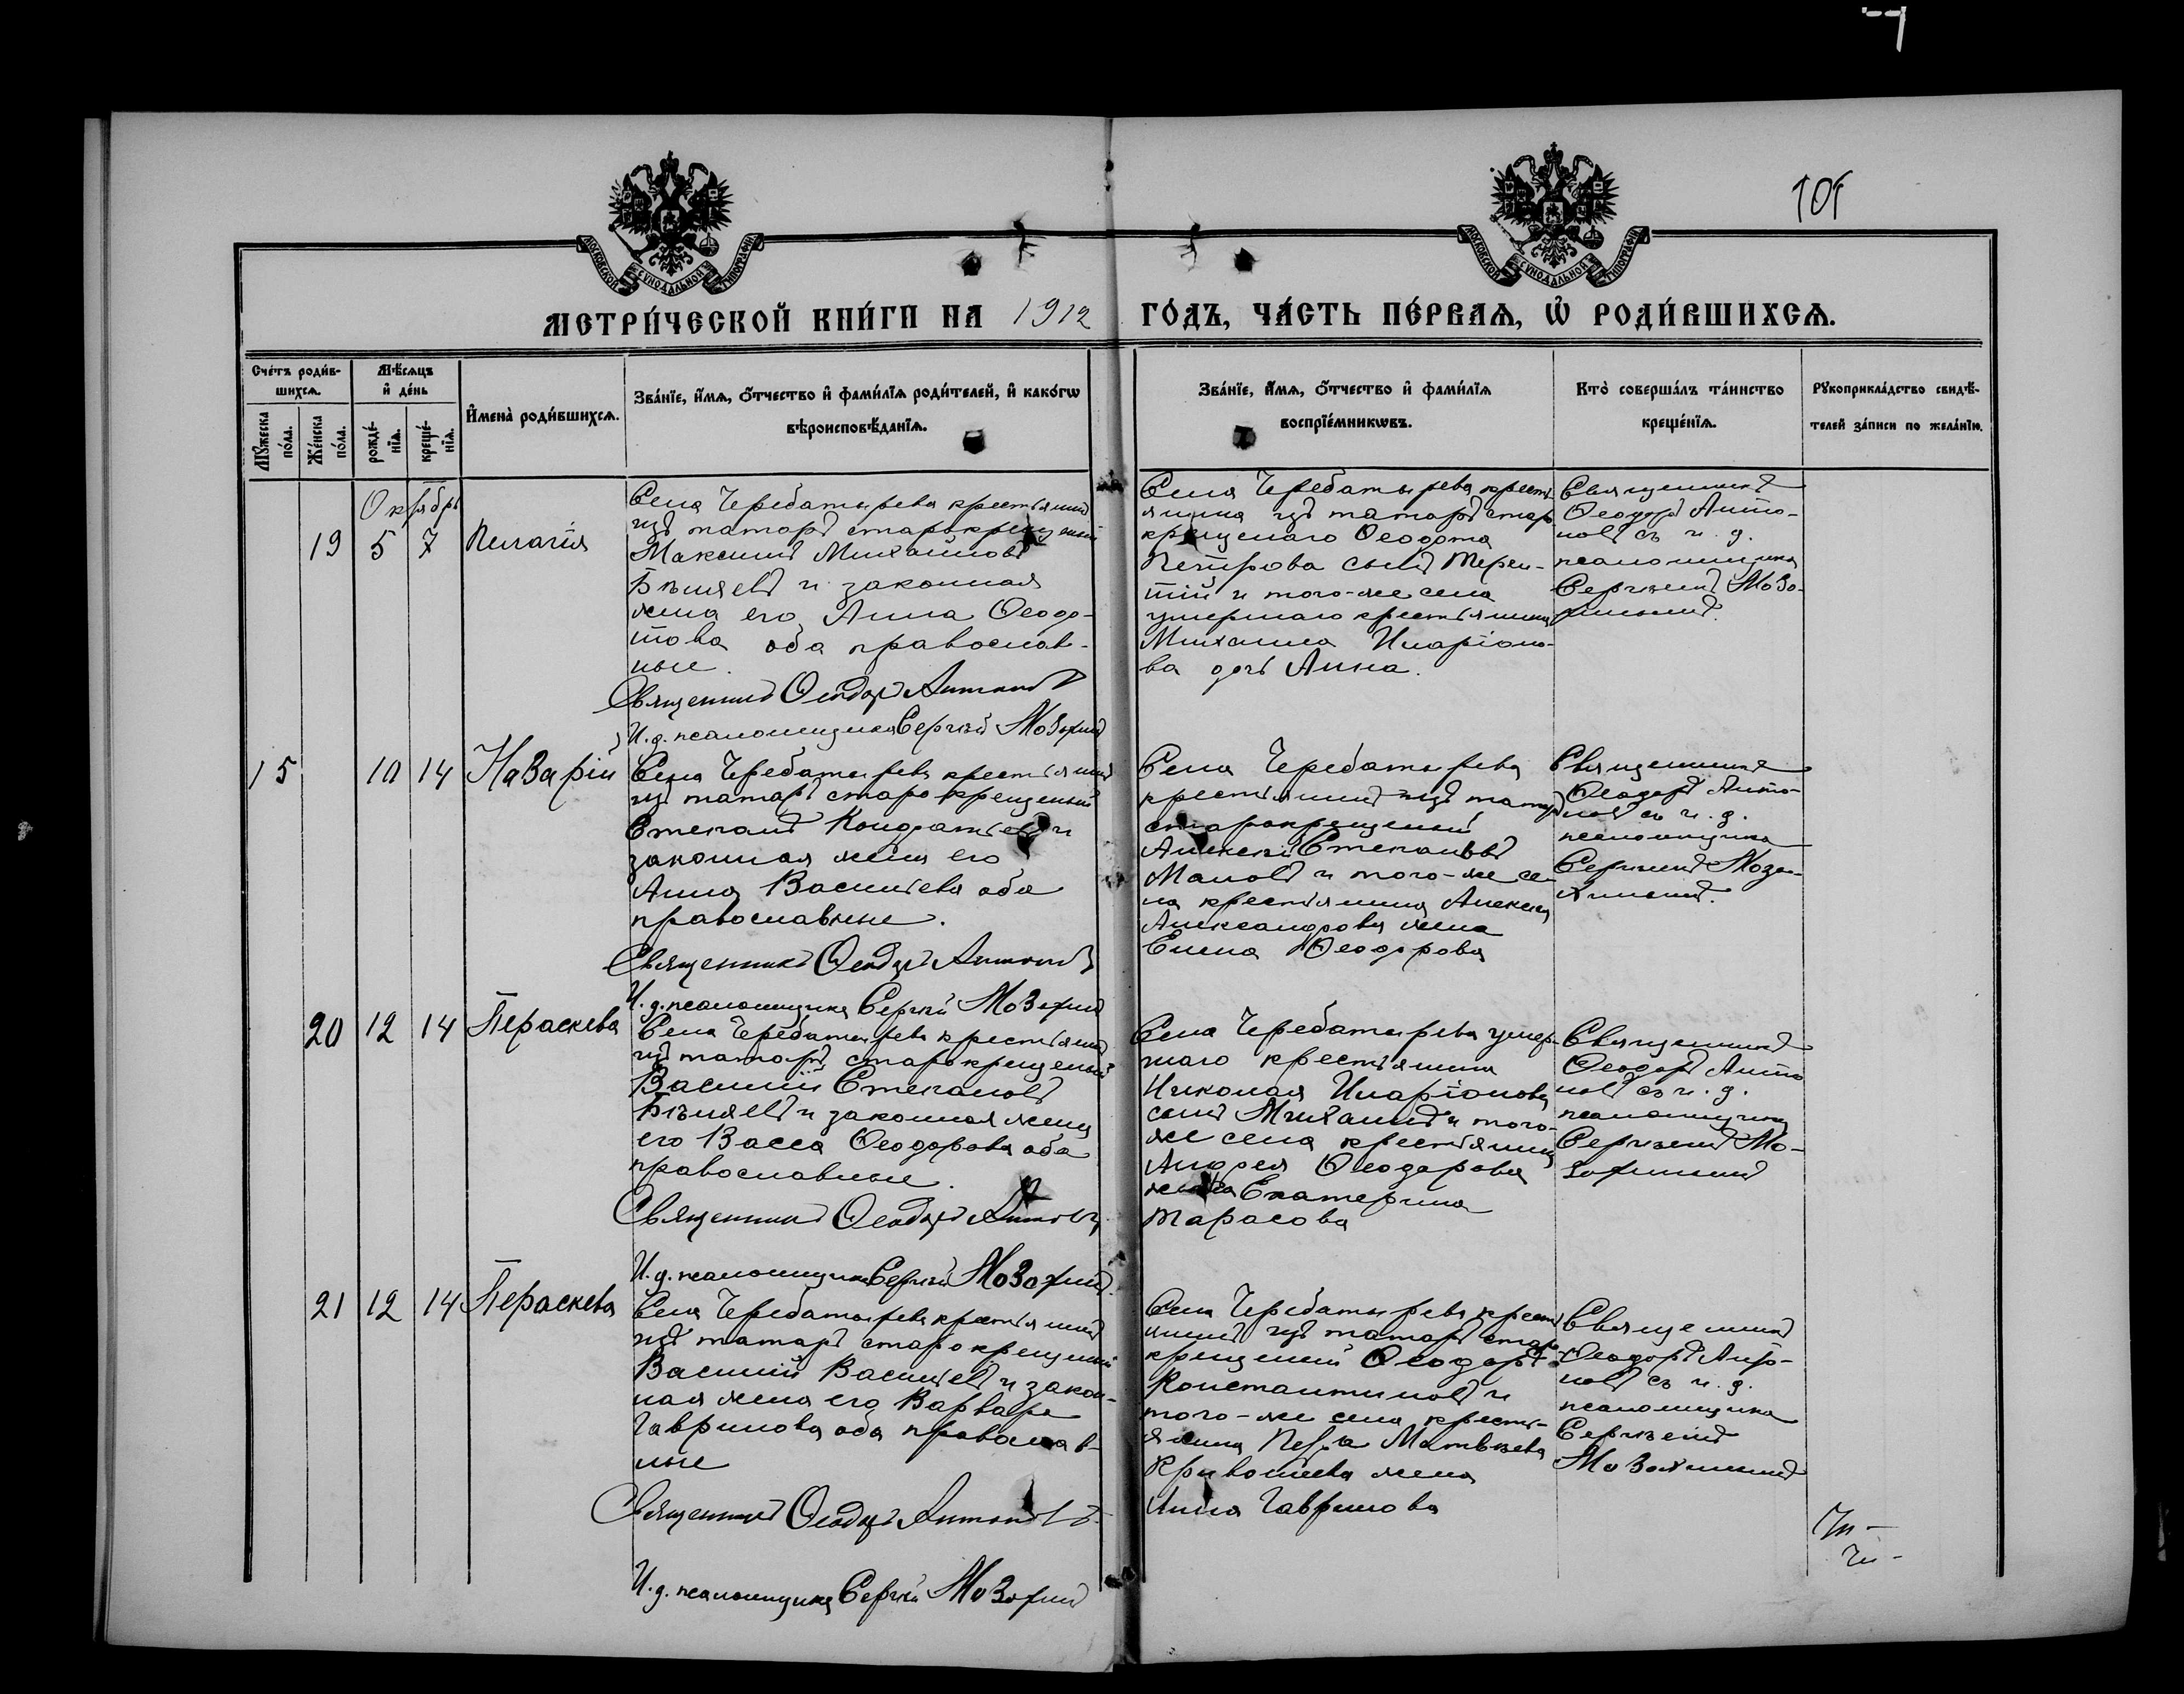 101
МОСКОВСКОЙ СѴНОДАЛЬНОЙ ТИПОГРАФІИ
МОСКОВСКОЙ СѴНОДАЛЬНОЙ ТИПОГРАФІИ
МЕТРИ́ЧЕСКОЙ КНИ́ГИ НА 1912 ГО́ДЪ, ЧА́СТЬ ПЕ́РВАЯ, Ѡ҆ РОДИ́ВШИХСЯ.
Сче́тъ роди́в-
шихся.
Мѣ́сяцъ
и҆ де́нь
Мꙋ́жеска
по́ла.
Же́нска
по́ла.
рожде́-
нїя.
креще́-
нїя.
И҆мена̀ роди́вшихся.
Зва́нїе, и҆́мя, ѻ҆́тчество и҆ фами́лїя роди́телей, и҆ како́гѡ
вѣроисповѣ́данїя.
Зва́нїе, и҆́мя, ѻ҆́тчество и҆ фами́лїя
воспрїе́мникѡвъ.
Кто̀ соверша́лъ та́инство
креще́нїя.
Рꙋкоприкла́дство свидѣ́-
телей за́писи по жела́нїю.
Октябрь
19 5 7 Пелагія
Села Чербатырева крестьянинъ
изъ татаръ старокрещеный
Максимъ Михайловъ
Бѣляевъ и законная
жена его Анна Ѳеодо-
това оба православ-
ные.
Священникъ Ѳеодоръ Антоновъ
И. д. псаломщика Сергѣй Мозохинъ
Села Чербатырева кресть-
янина изъ татаръ старо-
крещенаго Ѳеодота
Петрова сынъ Терен-
тій и того-же села
умершаго крестьянина
Михаила Иларіоно-
ва дочь Анна.
Священникъ
Ѳеодоръ Анто-
новъ съ и. д.
псаломщика
Сергѣемъ Мозо-
хинымъ.
15 10 14 Назарій
Села Чербатырева крестьянинъ
изъ татаръ старокрещеный
Степанъ Кондратьевъ и
законная жена его
Анна Васильева оба
православные.
Священникъ Ѳеодоръ Антоновъ
И. д. псаломщика Сергѣй Мозохинъ
Села Чербатырева
крестьянинъ изъ татаръ
старокрещеный
Алексѣй Степановъ
и того-же се-
ла крестьянина Алексѣя
Александрова жена
Елена Ѳеодорова
Священникъ
Ѳеодоръ Анто-
новъ съ и. д.
псаломщика
Сергѣемъ Мозо-
хинымъ.
20 12 14 Параскева
Села Чербатырева крестьянинъ
изъ татаръ старокрещеный
Василій Степановъ
Бѣляевъ и законная жена
его Васса Ѳеодорова оба
православные.
Священникъ Ѳеодоръ Антоновъ
И. д. псаломщика Сергѣй Мозохинъ.
Села Чербатырева умер-
шаго крестьянина
Николая Иларіонова
сынъ Михаилъ и того-
же села крестьянина
Андрея Ѳеодорова
жена Екатерина
Тарасова
Священникъ
Ѳеодоръ Анто-
новъ съ и. д.
псаломщика
Сергѣемъ Мо-
зохинымъ
21 12 14 Параскева
Села Чербатырева крестьянинъ
изъ татаръ старокрещеный
Василій Васильевъ и закон-
ная жена его Варвара
Гаврилова оба православ-
ные
Священникъ Ѳеодоръ Антоновъ
И. д. псаломщика Сергѣй Мозохинъ
Села Чербатырева кресть-
янинъ изъ татаръ старо-
крещеный Ѳеодоръ
Константиновъ и
того-же села кресть-
янина Петра Матвѣева
жена
Анна Гаврилова
Священникъ
Ѳеодоръ Анто-
новъ съ и. д.
псаломщика
Сергѣемъ
Мозохинымъ